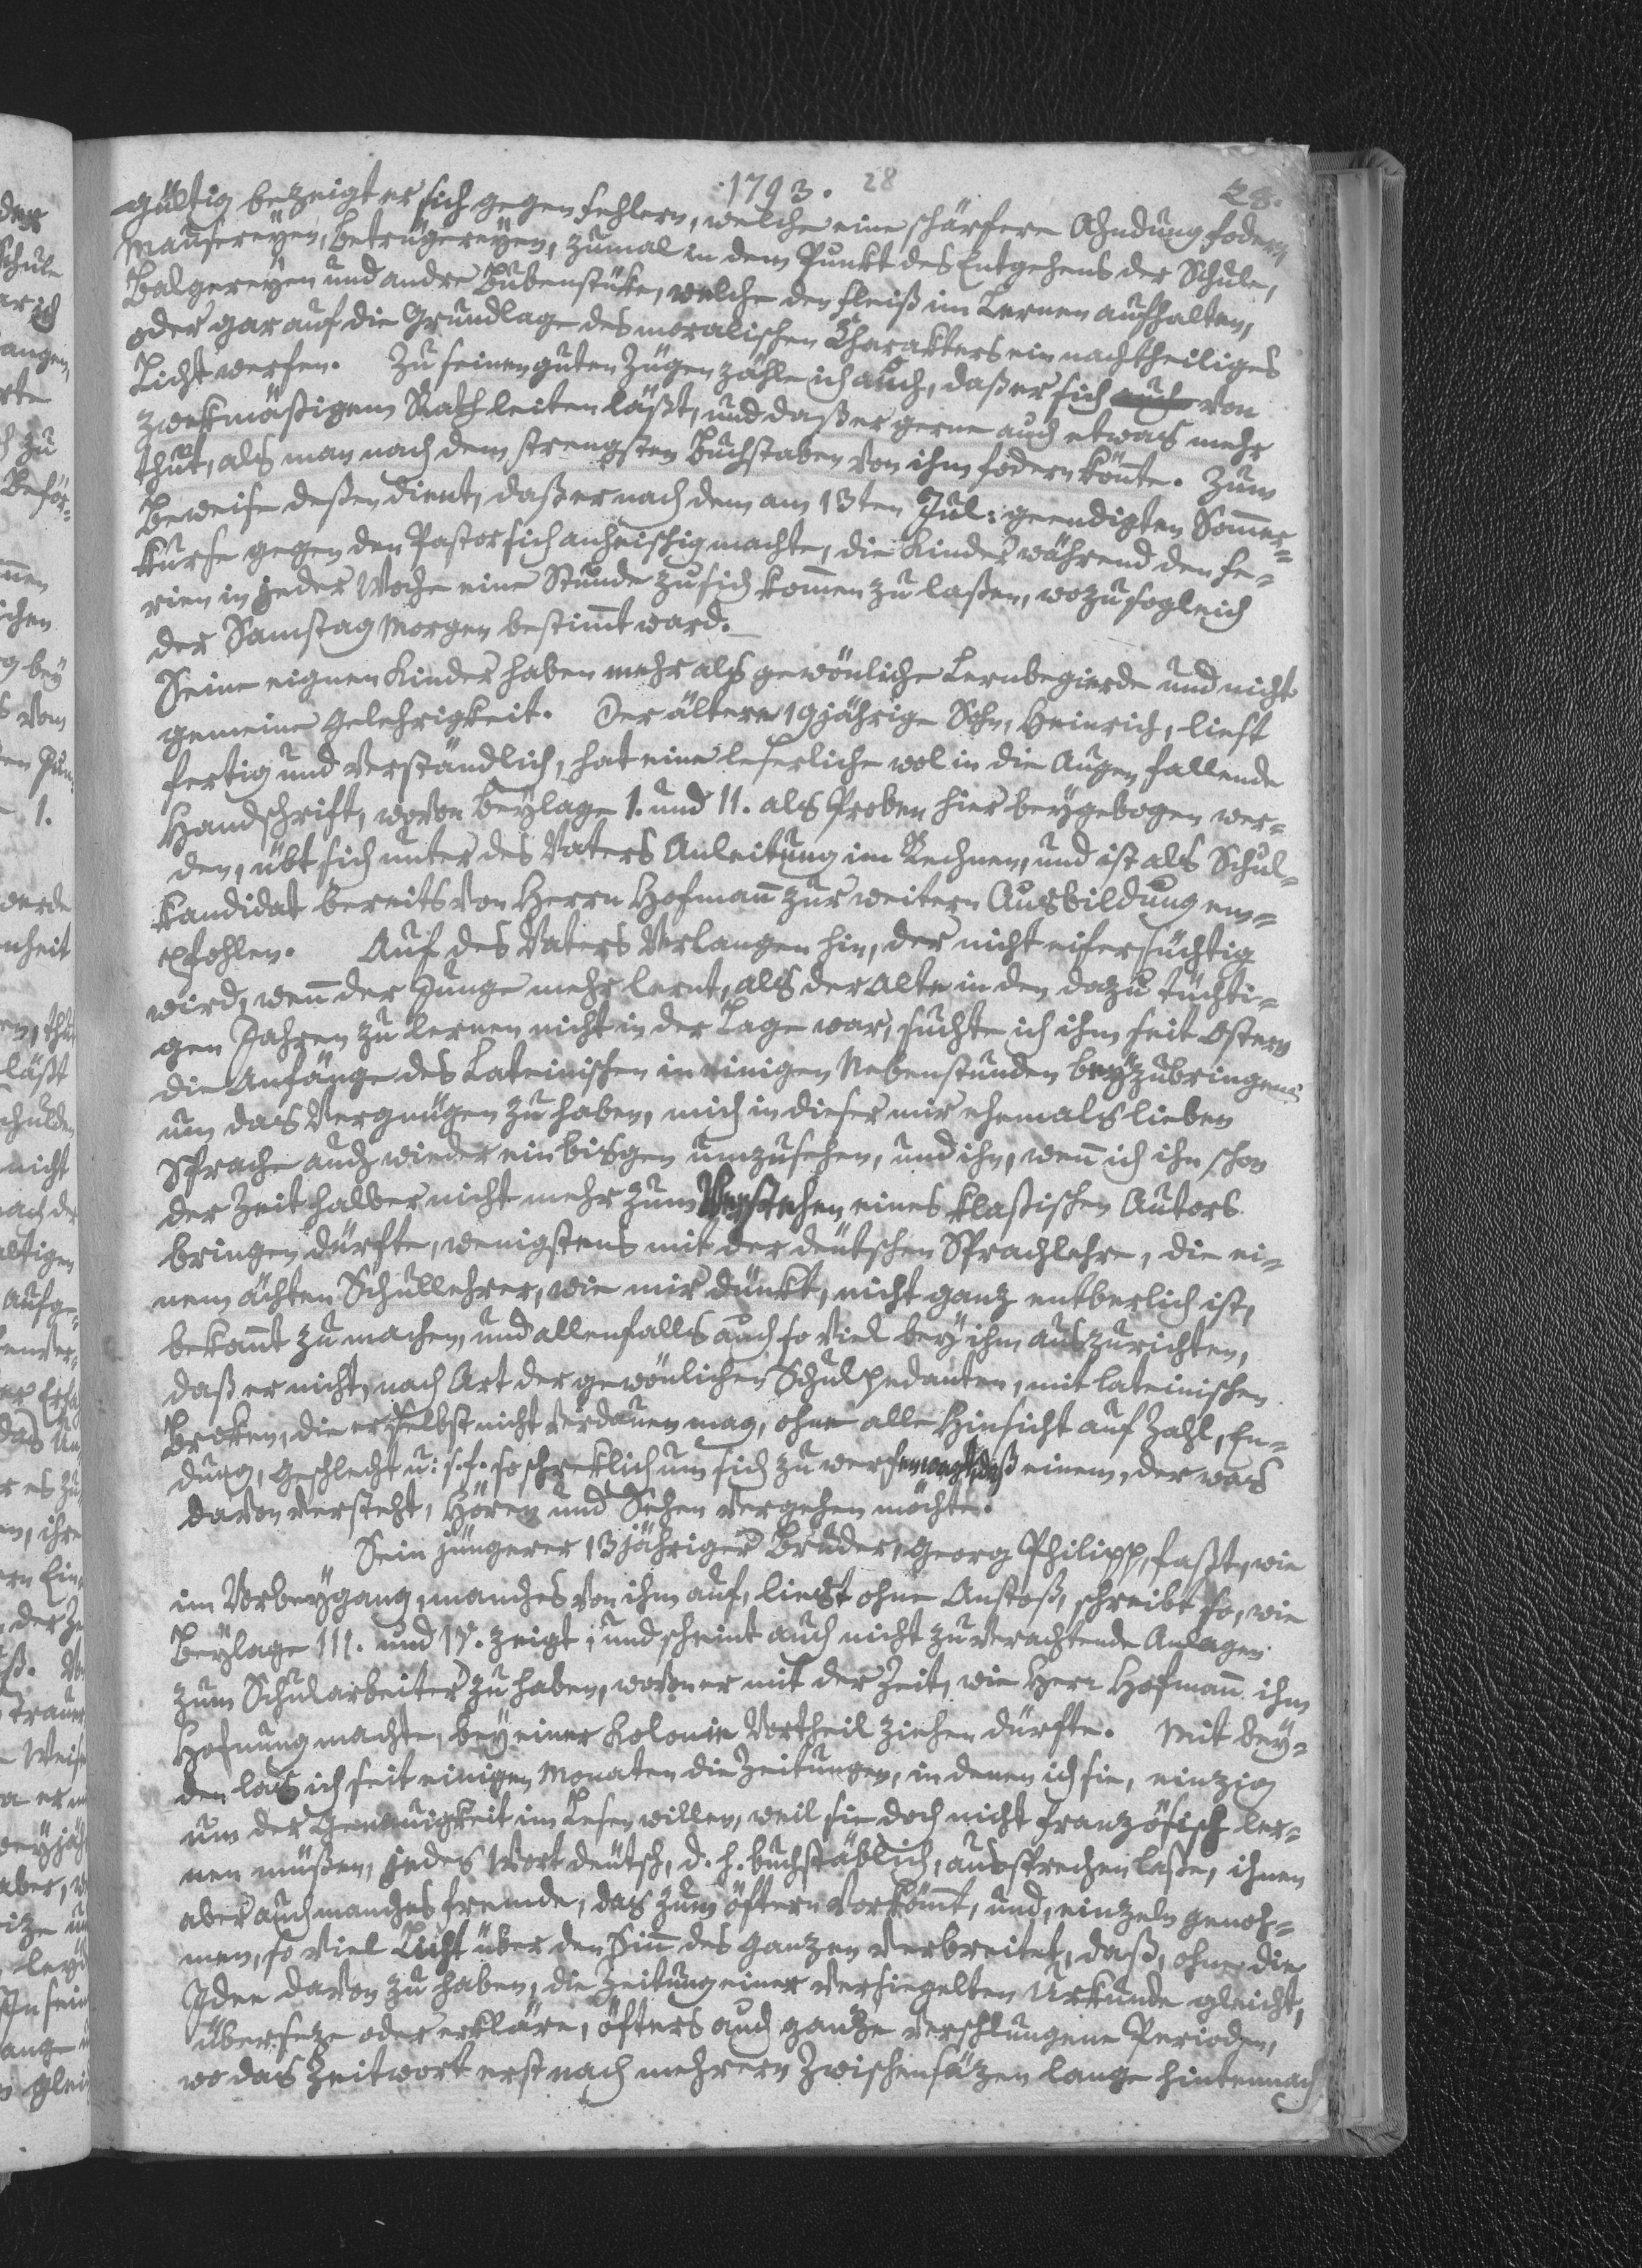 ·1793. 28 28.
gültig bezeigt er sich gegen Fehlern, welche eine schärfere Ahndung fodern,
Mausereyen, Betrügereyen, zumal in dem Punkt des Entgehens der Schule,
Balgereyen und andre Bubenstüke, welche den Fleiß im Lernen aufhalten,
oder gar auf die Grundlage des moralischen Charakters ein nachtheiliges
Licht werfen. Zu seinen guten Zügen zähle ich auch, daß er sich auch von
zwekmäßigem Rath leiten läßt, und daß er gerne auch etwas mehr
thut, als man nach dem strengsten Buchstaben von ihm fodern könte. Zum
Beweise deßen dient, daß er nach dem am 13ten Jul: geendigten Somer=
kurse gegen den Pastor sich anheischig machte, die Kinder während den Fe=
rien in jeder Woche eine Stunde zu sich komen zu laßen, wozu sogleich
der Samstag Morgen bestimt ward.
Seine eignen Kinder haben mehr als gewönliche Lernbegierde und nicht
gemeine Gelehrigkeit. Der ältere 19jährige Sohn, Heinrich, liest
fertig und verständlich, hat eine leserliche wol in die Augen fallende
Handschrift, wovon Beylage 1. und 11. als Proben hier beygebogen wer=
den, übt sich unter des Vaters Anleitung im Rechnen, und ist als Schul=
kandidat bereits von Herrn Hofmañ zur weitern Ausbildung em=
pfohlen. Auf des Vaters Verlangen hin, der nicht eifersüchtig
wird, weñ der Junge mehr lernt, als der Alte in den dazu tüchti=
gen Jahren zu lernen nicht in der Lage war, suchte ich ihm seit Ostern
die Anfänge des Lateinischen in einigen Nebenstunden beyzubringen
um das Vergnügen zu haben, mich in dieser mir ehemals lieben
Sprache auch wieder ein bisgen umzusehen, und ihn, weñ ich ihn schon
der Zeit halber nicht mehr zum Verstehen eines klaßischen Autors
bringen dürfte, wenigstens mit der deutschen Sprachlehre, die ei=
nem ächten Schullehrer, wie mir dünkt, nicht ganz entberlich ist,
bekañt zu machen, und allenfalls auch so viel bey ihm auszurichten,
daß er nicht, nach Art der gewönlichen Schulpedanten, mit lateinischen
Broken, die er selbst nicht verdauen mag, ohne alle Hinsicht auf Zahl, En=
dung, Geschlecht u: s. f. so schreklich um sich zu werfen wagt, daß einem, der was
davon versteht, Hören und Sehen vergehen möchte.
Sein jüngerer 13jähriger Bruder, Georg Philipp, faßt, wie
im Vorbeygang, manches von ihm auf, liest ohne Anstoß, schreibt so, wie
Beylage 111. und 1V. zeigt, und scheint auch nicht zu verachtende Anlagen
zum Schularbeiter zu haben, wovon er mit der Zeit, wie Herr Hofmañ ihm
Hofnung machte, bey einer Kolonie Vortheil ziehen dürfte. Mit bey=
den las ich seit einigen Monaten die Zeitungen, in denen ich sie, einzig
um der Genauigkeit im Lesen willen, weil sie doch nicht französisch ler=
nen müßen, jedes Wort deutsch, d. h. buchstäblich, aussprechen laße, ihnen
aber auch manches fremde, das zum öftern vorkömt, und, einzeln genom=
men, so viel Licht über den Siñ des Ganzen verbreitet, daß, ohne die
Idee davon zu haben, die Zeitung einer versiegelten Urkunde gleicht,
überseze oder erkläre, öfters auch ganze verschlungene Perioden,
wo das Zeitwort erst nach mehrern Zwischensäzen lange hintennach